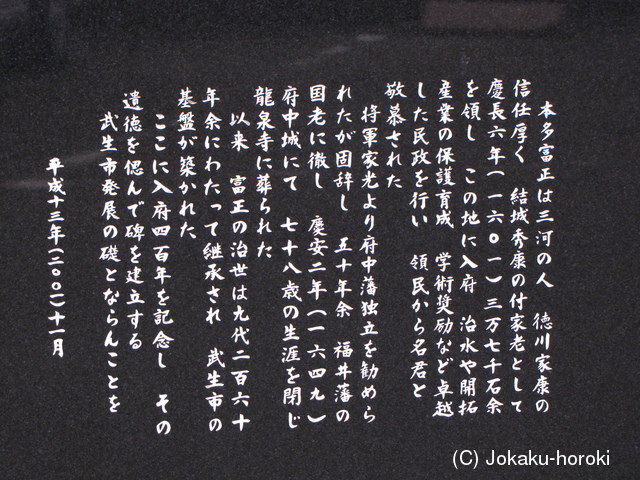 本多富正は三河の人　徳川家康の
信任厚く　結城秀康の付家老として
慶長六年(一六〇一)三万七千石余
を領し　この地に入府　治水や開拓
産業の保護育成　学術奨励など卓越
した民政を行い　領民から名君と
敬慕された
将軍家光より府中藩独立を勧めら
れたが固辞し　五十年余　福井藩の
国老に徹し　慶安二年(一六四九)
府中城にて　七十八歳の生涯を閉じ
龍泉寺に葬られた
以来　富正の治世は九代二百六十
年余にわたって継承され　武生市の
基盤が築かれた
ここに入府四百年を記念し　その
遺徳を偲んで碑を建立する
武生市発展の礎とならんことを
平成十三年(二〇〇一)十一月
(C) Jokaku-horoki